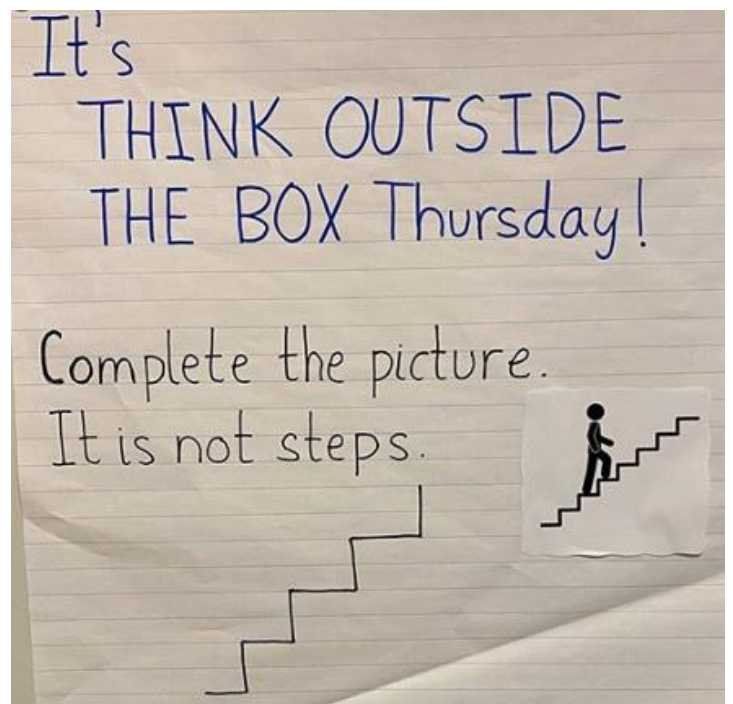 It's
THINK OUTSIDE
THE BOX Thursday!
Complete the picture.
It is not steps.